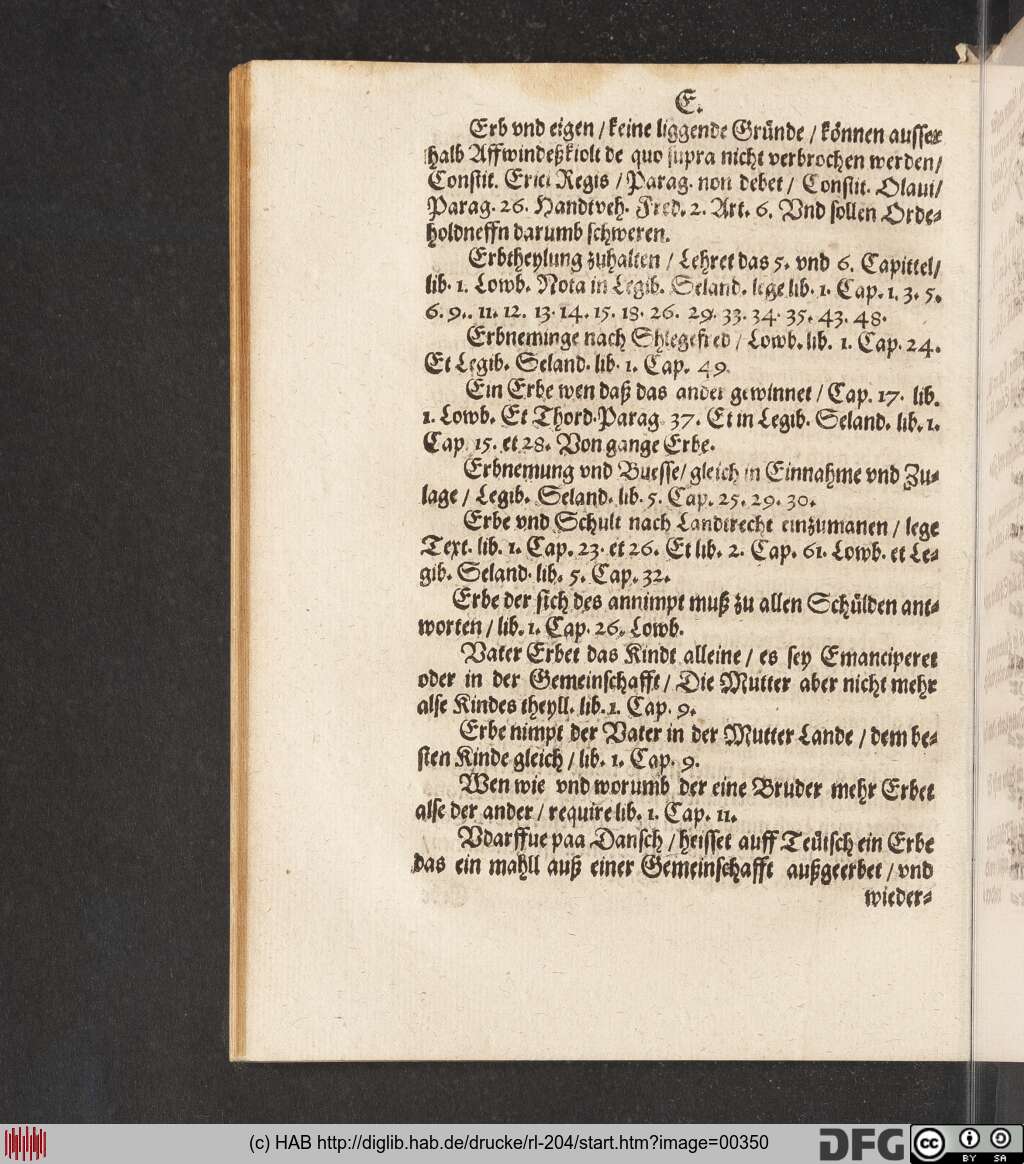 E.
Erb vnd eigen / keine liggende Gründe / können ausser
halb Affwindeßkiolt de quo supra nicht verbrochen werden/
Constit. Erici Regis / Parag. non debet / Constit. Olaui/
Parag. 26. Handtveh. Fred. 2. Art. 6. Vnd sollen Orde-
holdneffn darumb schweren.
Erbtheylung zuhalten / Lehret das 5. vnd 6. Capittel/
lib. 1. Lowb. Nota in Legib. Seland. lege lib. 1. Cap. 1. 3. 5.
6. 9.. 11. 12. 13. 14. 15. 18. 26. 29. 33. 34. 35. 43. 48.
Erbneminge nach Shlegefred / Lowb. lib. 1. Cap. 24.
Et Legib. Seland. lib. 1. Cap. 49.
Ein Erbe wen daß das ander gewinnet / Cap. 17. lib.
1. Lowb. Et Thord. Parag. 37. Et in Legib. Seland. lib. 1.
Cap. 15. et 28. Von gange Erbe.
Erbnemung vnd Buesse / gleich in Einnahme vnd Zu-
lage / Legib. Seland. lib. 5. Cap. 25. 29. 30.
Erbe vnd Schult nach Landtrecht einzumanen / lege
Text. lib. 1. Cap. 23. et 26. Et lib. 2. Cap. 61. Lowb. et Le-
gib. Seland. lib. 5. Cap. 32.
Erbe der sich des annimpt muß zu allen Schülden ant-
worten / lib. 1. Cap. 26. Lowb.
Vater Erbet das Kindt alleine / es sey Emanciperet
oder in der Gemeinschafft / Die Mutter aber nicht mehr
alse Kindes theyll. lib. 1. Cap. 9.
Erbe nimpt der Vater in der Mutter Lande / dem be-
sten Kinde gleich / lib. 1. Cap. 9.
Wen wie vnd worumb der eine Bruder mehr Erbet
alse der ander / require lib. 1. Cap. 11.
Vdarffue paa Dansch / heisset auff Teütsch ein Erbe
das ein mahll auß einer Gemeinschafft außgeerbet / vnd
wieder-
(c) HAB http://diglib.hab.de/drucke/rl-204/start.htm?image=00350
DFG
cc
BY SA